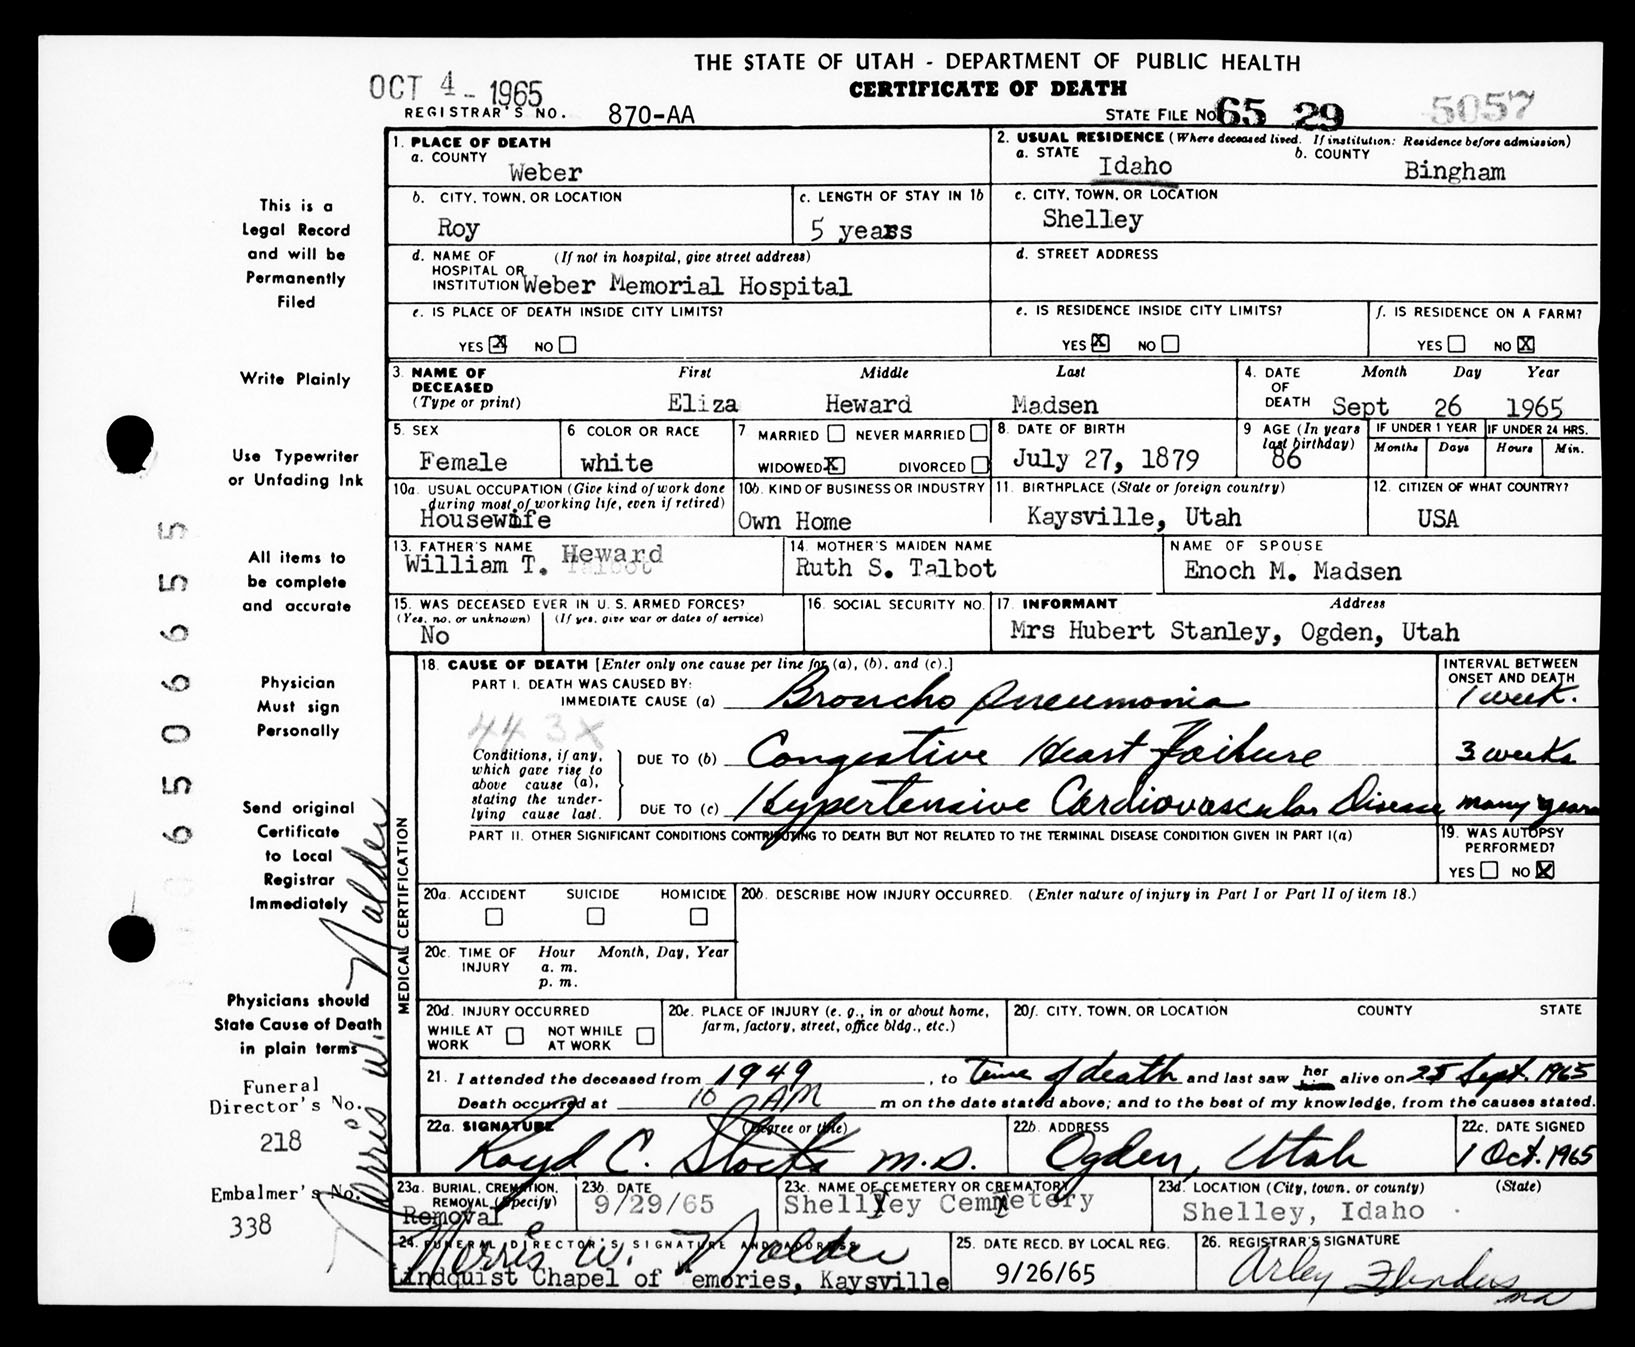 THE STATE OF UTAH - DEPARTMENT OF PUBLIC HEALTH
CERTIFICATE OF DEATH
OCT 4 - 1965
REGISTRAR'S NO. 870-AA
STATE FILE NO 65 29 5057
1. PLACE OF DEATH
a. COUNTY Weber
2. USUAL RESIDENCE (Where deceased lived. If institution: Residence before admission)
a. STATE Idaho b. COUNTY Bingham
b. CITY, TOWN, OR LOCATION Roy
c. LENGTH OF STAY IN 1b 5 years
c. CITY, TOWN, OR LOCATION Shelley
d. NAME OF HOSPITAL OR INSTITUTION (If not in hospital, give street address) Weber Memorial Hospital
d. STREET ADDRESS
e. IS PLACE OF DEATH INSIDE CITY LIMITS?
YES X NO
e. IS RESIDENCE INSIDE CITY LIMITS?
YES X NO
f. IS RESIDENCE ON A FARM?
YES NO X
3. NAME OF DECEASED (Type or print)
First Middle Last
Eliza Heward Madsen
4. DATE OF DEATH Month Day Year
Sept 26 1965
5. SEX Female
6 COLOR OR RACE white
7 MARRIED NEVER MARRIED
WIDOWED X DIVORCED
8. DATE OF BIRTH July 27, 1879
9 AGE (In years last birthday) 86
IF UNDER 1 YEAR Months Days
IF UNDER 24 HRS. Hours Min.
10a. USUAL OCCUPATION (Give kind of work done during most of working life, even if retired) Housewife
10b. KIND OF BUSINESS OR INDUSTRY Own Home
11. BIRTHPLACE (State or foreign country) Kaysville, Utah
12. CITIZEN OF WHAT COUNTRY? USA
13. FATHER'S NAME William T. Heward
14. MOTHER'S MAIDEN NAME Ruth S. Talbot
NAME OF SPOUSE Enoch M. Madsen
15. WAS DECEASED EVER IN U. S. ARMED FORCES?
(Yes, no, or unknown) (If yes, give war or dates of service)
No
16. SOCIAL SECURITY NO.
17. INFORMANT Address
Mrs Hubert Stanley, Ogden, Utah
MEDICAL CERTIFICATION
18. CAUSE OF DEATH [Enter only one cause per line for (a), (b), and (c).]
INTERVAL BETWEEN ONSET AND DEATH
PART I. DEATH WAS CAUSED BY:
IMMEDIATE CAUSE (a) Broncho pneumonia 1 week.
443X
Conditions, if any, which gave rise to above cause (a), stating the underlying cause last.
DUE TO (b) Congestive Heart Failure 3 weeks
DUE TO (c) Hypertensive Cardiovascular Disease many years
PART II. OTHER SIGNIFICANT CONDITIONS CONTRIBUTING TO DEATH BUT NOT RELATED TO THE TERMINAL DISEASE CONDITION GIVEN IN PART I(a)
19. WAS AUTOPSY PERFORMED?
YES NO X
20a. ACCIDENT SUICIDE HOMICIDE
20b. DESCRIBE HOW INJURY OCCURRED. (Enter nature of injury in Part I or Part II of item 18.)
20c. TIME OF INJURY Hour Month, Day, Year
a. m.
p. m.
20d. INJURY OCCURRED
WHILE AT WORK NOT WHILE AT WORK
20e. PLACE OF INJURY (e. g., in or about home, farm, factory, street, office bldg., etc.)
20f. CITY, TOWN, OR LOCATION COUNTY STATE
21. I attended the deceased from 1949, to time of death and last saw her him alive on 25 Sept. 1965
Death occurred at 10 AM m on the date stated above; and to the best of my knowledge, from the causes stated.
22a. SIGNATURE (Degree or title)
M.D.
22b. ADDRESS Ogden, Utah
22c. DATE SIGNED 1 Oct. 1965
23a. BURIAL, CREMATION, REMOVAL (Specify) Removal
23b. DATE 9/29/65
23c. NAME OF CEMETERY OR CREMATORY Shelley Cemetery
23d. LOCATION (City, town, or county) (State)
Shelley, Idaho
24. FUNERAL DIRECTOR'S SIGNATURE AND ADDRESS
Norris W. Nalder
Lindquist Chapel of Memories, Kaysville
25. DATE RECD. BY LOCAL REG. 9/26/65
26. REGISTRAR'S SIGNATURE
Arley Flinders
This is a
Legal Record
and will be
Permanently
Filed
Write Plainly
Use Typewriter
or Unfading Ink
All items to
be complete
and accurate
Physician
Must sign
Personally
Send original
Certificate
to Local
Registrar
Immediately
Physicians should
State Cause of Death
in plain terms
Funeral
Director's No.
218
Embalmer's No.
338
Norris W. Nalder
6506655